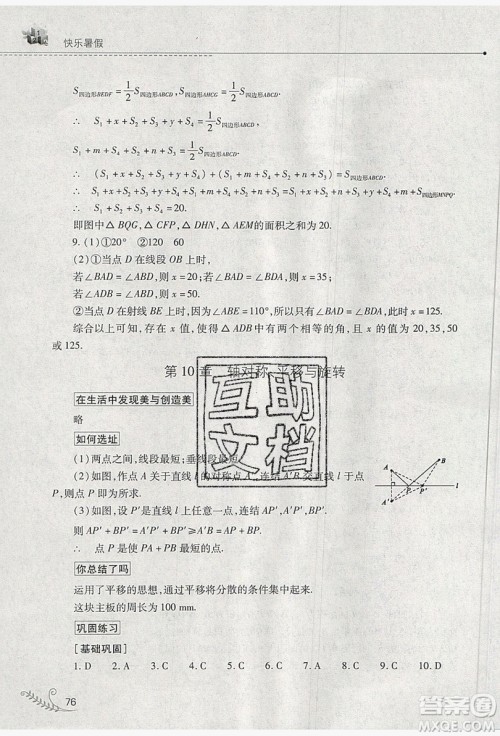 快乐暑假
S四边形BEDF=1/2S四边形ABCD,S四边形AHCG=1/2S四边形ABCD.
∴ S₁+x+S₂+S₃+y+S₄=1/2S四边形ABCD,
S₁+m+S₄+S₂+n+S₃=1/2S四边形ABCD.
∴ (S₁+x+S₂+S₃+y+S₄)+
(S₁+m+S₄+S₂+n+S₃)=S四边形ABCD.
∴ (S₁+x+S₂+S₃+y+S₄)+
(S₁+m+S₄+S₂+n+S₃)=S₁+S₂+S₃+S₄+x+y+m+n+S四边形MNPQ.
∴ S₁+S₂+S₃+S₄=20.
即图中△BQG,△CFP,△DHN,△AEM的面积之和为20.
9. (1)①20° ②120 60
(2)①当点D在线段OB上时,
若∠BAD=∠ABD,则x=20;若∠BAD=∠BDA,则x=35;
若∠ADB=∠ABD,则x=50.
②当点D在射线BE上时,因为∠ABE=110°,
所以只有∠BAD=∠BDA,此时x=125.
综合以上可知,存在x值,使得△ADB中有两个相等的角,x的值为20,35,50
或125.
第10章 轴对称、平移与旋转
在生活中发现美与创造美
略
如何选址
(1)两点之间,线段最短;垂线段最短.
(2)如图,作点A关于直线l的对称点A′,连结A′B交直线l于
点P,则点P即为所求.
(3)如图,设P′是直线l上任意一点,连结AP、AP′、BP′、A′P′.
则AP′+BP′=A′P′+BP′≥A′B=A′P+BP=AP+BP.
∴ 点P是使PA+PB最短的点.
A
B
P
P′
l
A′
你总结了吗
运用了平移的思想,通过平移将分散的条件集中起来.
这块主板的周长为100 mm.
巩固练习
[基础巩固]
1. D 2. A 3. D 4. C 5. D 6. B 7. C 8. C 9. C 10. D
76
互助
文档
答案圈
MXQE.COM